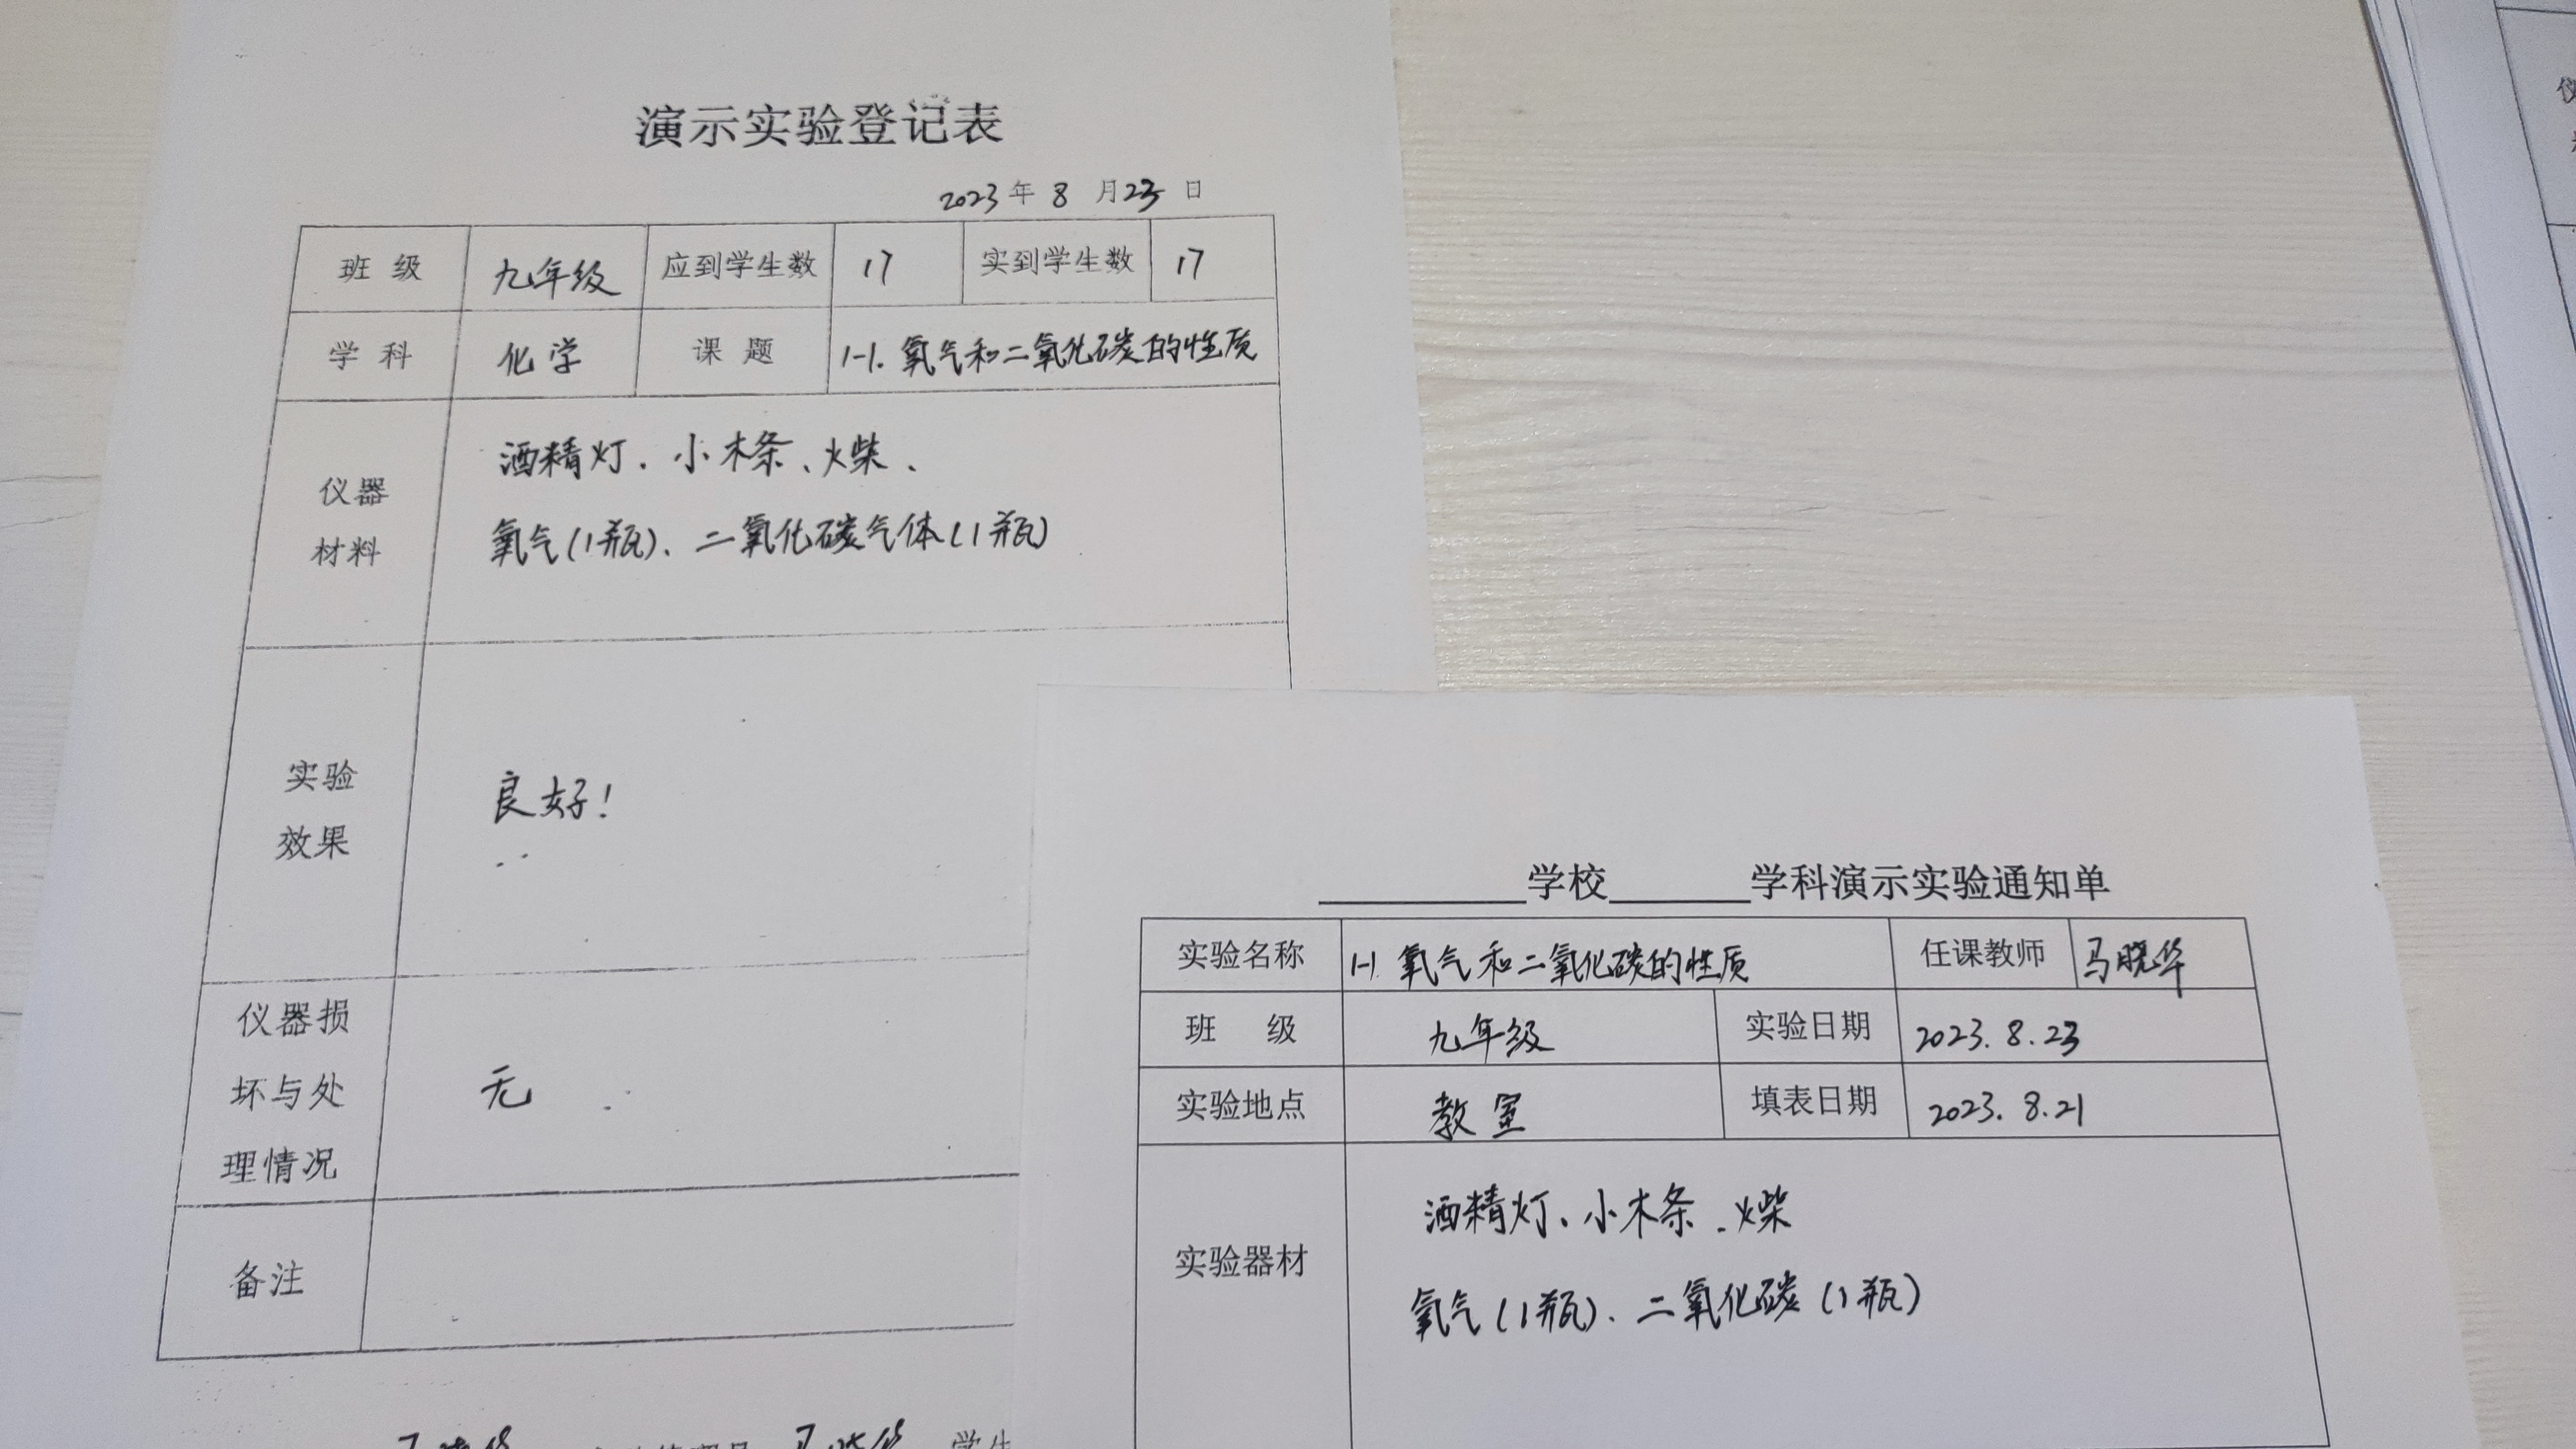 演示实验登记表
2023年 8 月23 日
班 级 九年级 应到学生数 17 实到学生数 17
学 科 化学 课 题 1-1. 氧气和二氧化碳的性质
仪器
材料
酒精灯、小木条、火柴、
氧气(1瓶)、二氧化碳气体(1瓶)
实验
效果
良好!
仪器损
坏与处
理情况
无
备注
学生
学校 学科演示实验通知单
实验名称 1-1. 氧气和二氧化碳的性质 任课教师 马晓华
班 级 九年级 实验日期 2023.8.23
实验地点 教室 填表日期 2023.8.21
实验器材
酒精灯、小木条、火柴
氧气(1瓶)、二氧化碳(1瓶)
仪